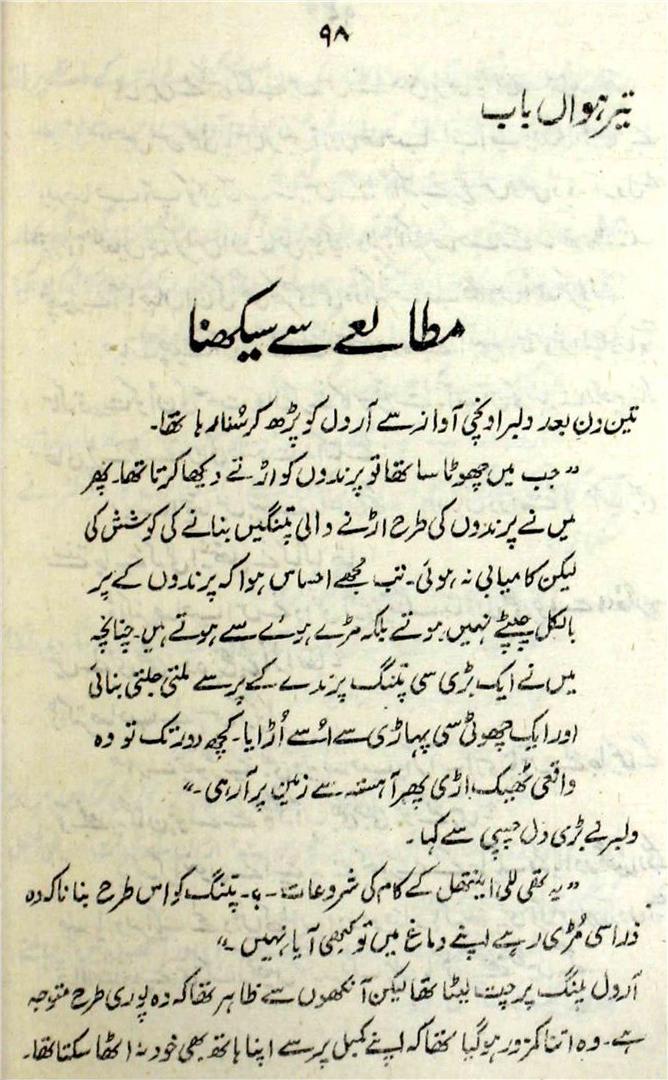 ۹۸
تیرہواں باب
مطالعے سے سیکھنا
تین دن بعد ولبر اونچی آواز سے آرول کو پڑھ کر سُنا رہا تھا۔
”جب میں چھوٹا سا تھا تو پرندوں کو اڑتے دیکھا کرتا تھا۔ پھر
میں نے پرندوں کی طرح اڑنے والی پتنگیں بنانے کی کوشش کی
لیکن کامیابی نہ ہوئی۔ تب مجھے احساس ہوا کہ پرندوں کے پر
بالکل چپٹے نہیں ہوتے بلکہ مڑے ہوئے سے ہوتے ہیں۔ چنانچہ
میں نے ایک بڑی سی پتنگ پرندے کے پر سے ملتی جلتی بنائی
اور ایک چھوٹی سی پہاڑی سے اُسے اُڑایا۔ کچھ دور تک تو وہ
واقعی ٹھیک اڑی پھر آہستہ سے زمین پر آ رہی۔“
ولبر نے بڑی دل چسپی سے کہا۔
”یہ تھی للی اینتھل کے کام کی شروعات۔ ؟۔ پتنگ کو اس طرح بنانا کہ وہ
ذرا سی مُڑی رہے اپنے دماغ میں تو کبھی آیا نہیں۔“
آرول پلنگ پر چت لیٹا تھا لیکن آنکھوں سے ظاہر تھا کہ وہ پوری طرح متوجہ
ہے۔ وہ اتنا کمزور ہو گیا تھا کہ اپنے کمبل پر سے اپنا ہاتھ بھی خود نہ اٹھا سکتا تھا۔